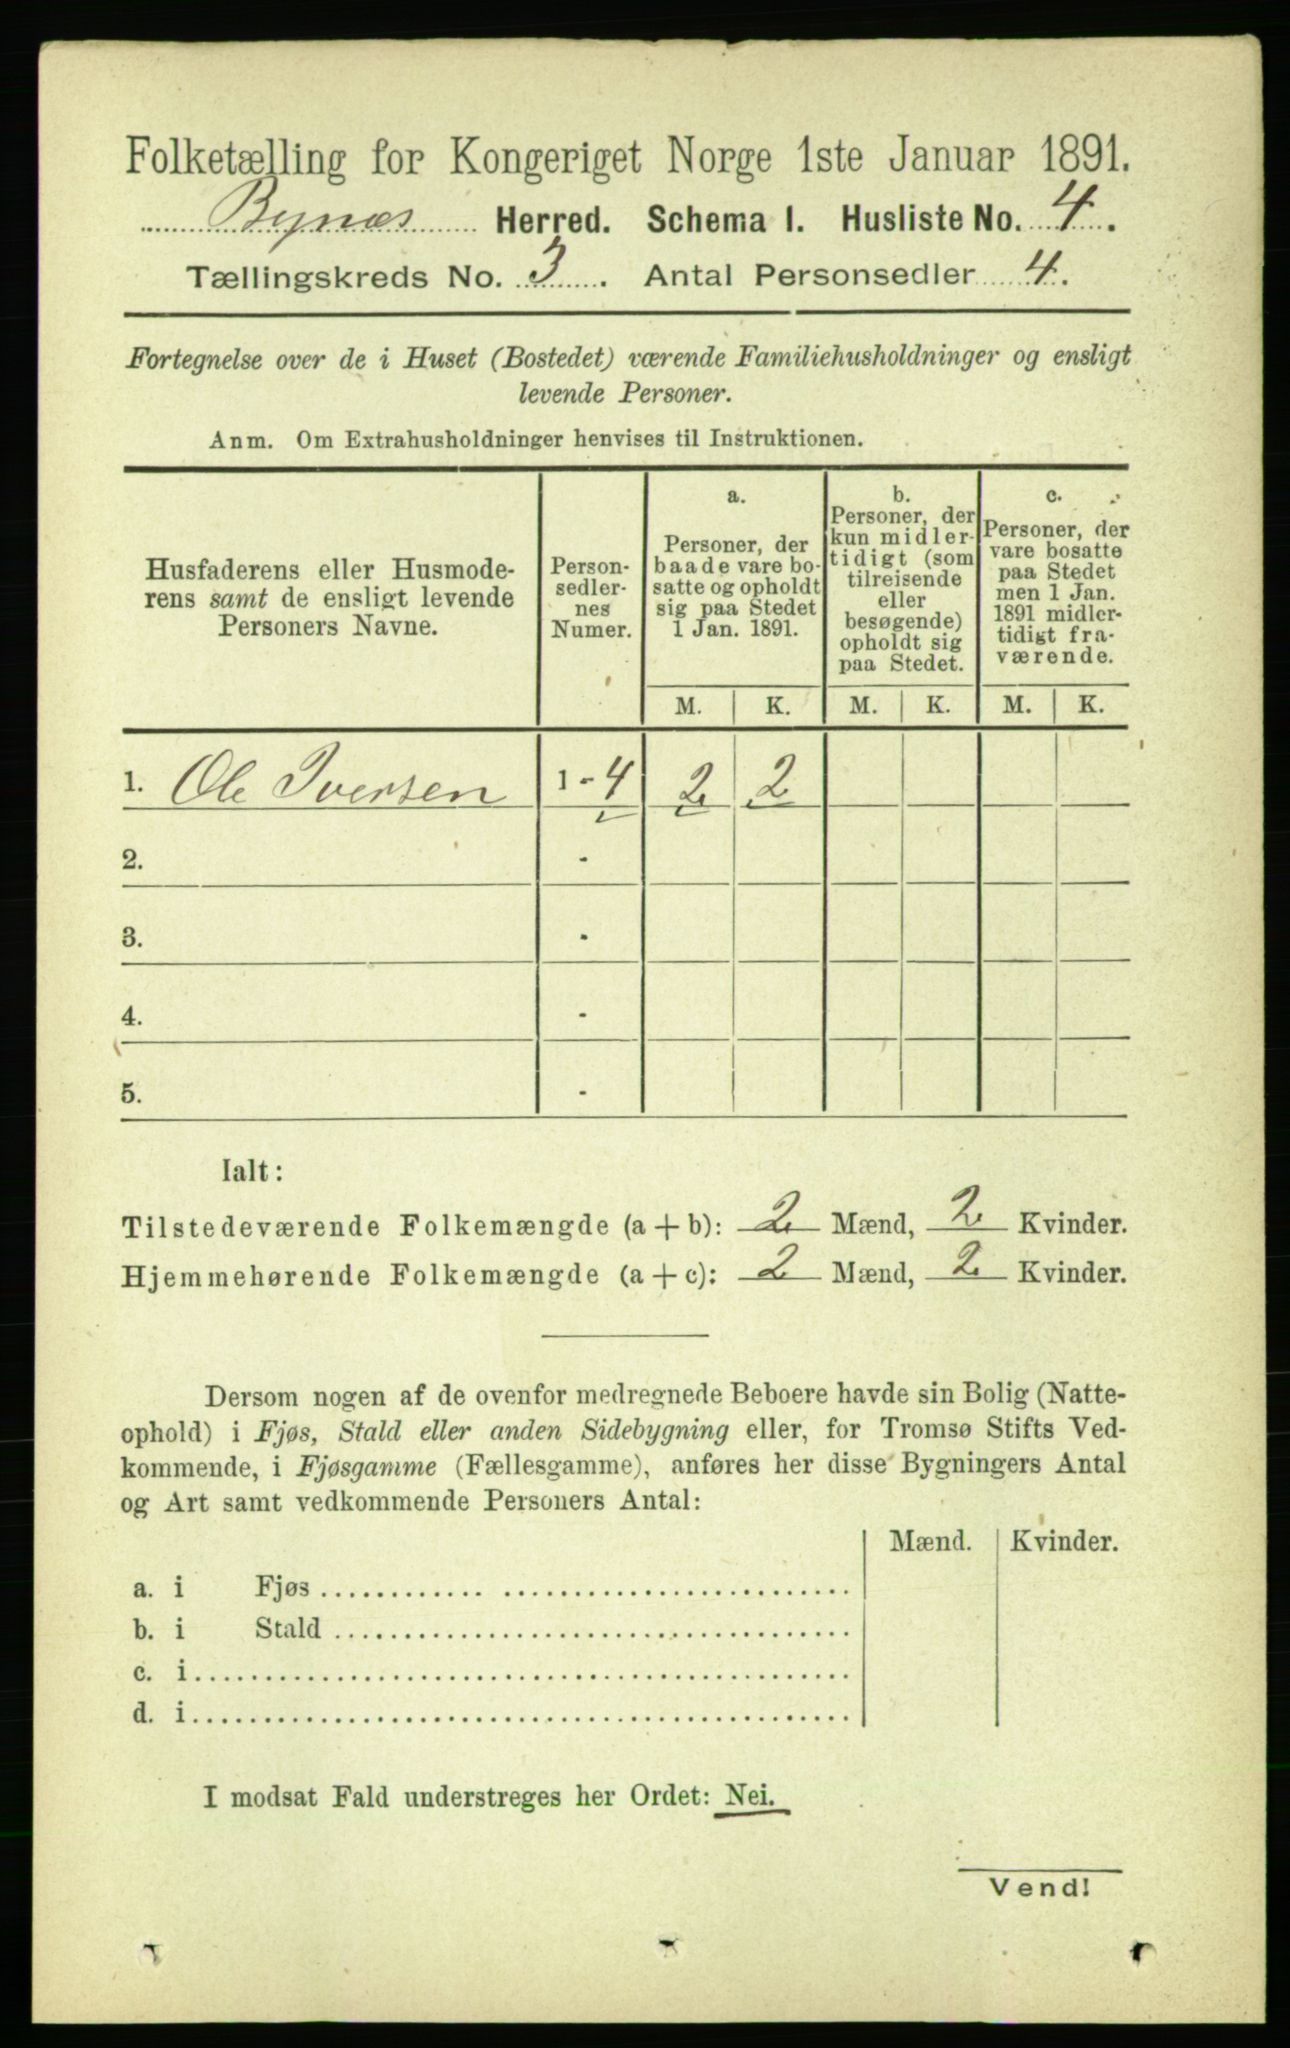 Folketælling for Kongeriget Norge 1ste Januar 1891.
Bynæs Herred. Schema I. Husliste No. 4.
Tællingskreds No. 3. Antal Personsedler 4.
Fortegnelse over de i Huset (Bostedet) værende Familiehusholdninger og ensligt
levende Personer.
Anm. Om Extrahusholdninger henvises til Instruktionen.
Husfaderens eller Husmode-
rens samt de ensligt levende
Personers Navne.
Person-
sedler-
nes
Numer.
a.
Personer, der
baade vare bo-
satte og opholdt
sig paa Stedet
1 Jan. 1891.
b.
Personer, der
kun midler-
tidigt (som
tilreisende
eller
besøgende)
opholdt sig
paa Stedet.
c.
Personer, der
vare bosatte
paa Stedet
men 1 Jan.
1891 midler-
tidigt fra-
værende.
M. K. M. K. M. K.
1. Ole Iversen 1 - 4 2 2
2. -
3. -
4. -
5. -
Ialt:
Tilstedeværende Folkemængde (a + b): 2 Mænd, 2 Kvinder.
Hjemmehørende Folkemængde (a + c): 2 Mænd, 2 Kvinder.
Dersom nogen af de ovenfor medregnede Beboere havde sin Bolig (Natte-
ophold) i Fjøs, Stald eller anden Sidebygning eller, for Tromsø Stifts Ved-
kommende, i Fjøsgamme (Fællesgamme), anføres her disse Bygningers Antal
og Art samt vedkommende Personers Antal:
Mænd. Kvinder.
a. i Fjøs
b. i Stald
c. i
d. i
I modsat Fald understreges her Ordet: Nei.
Vend!